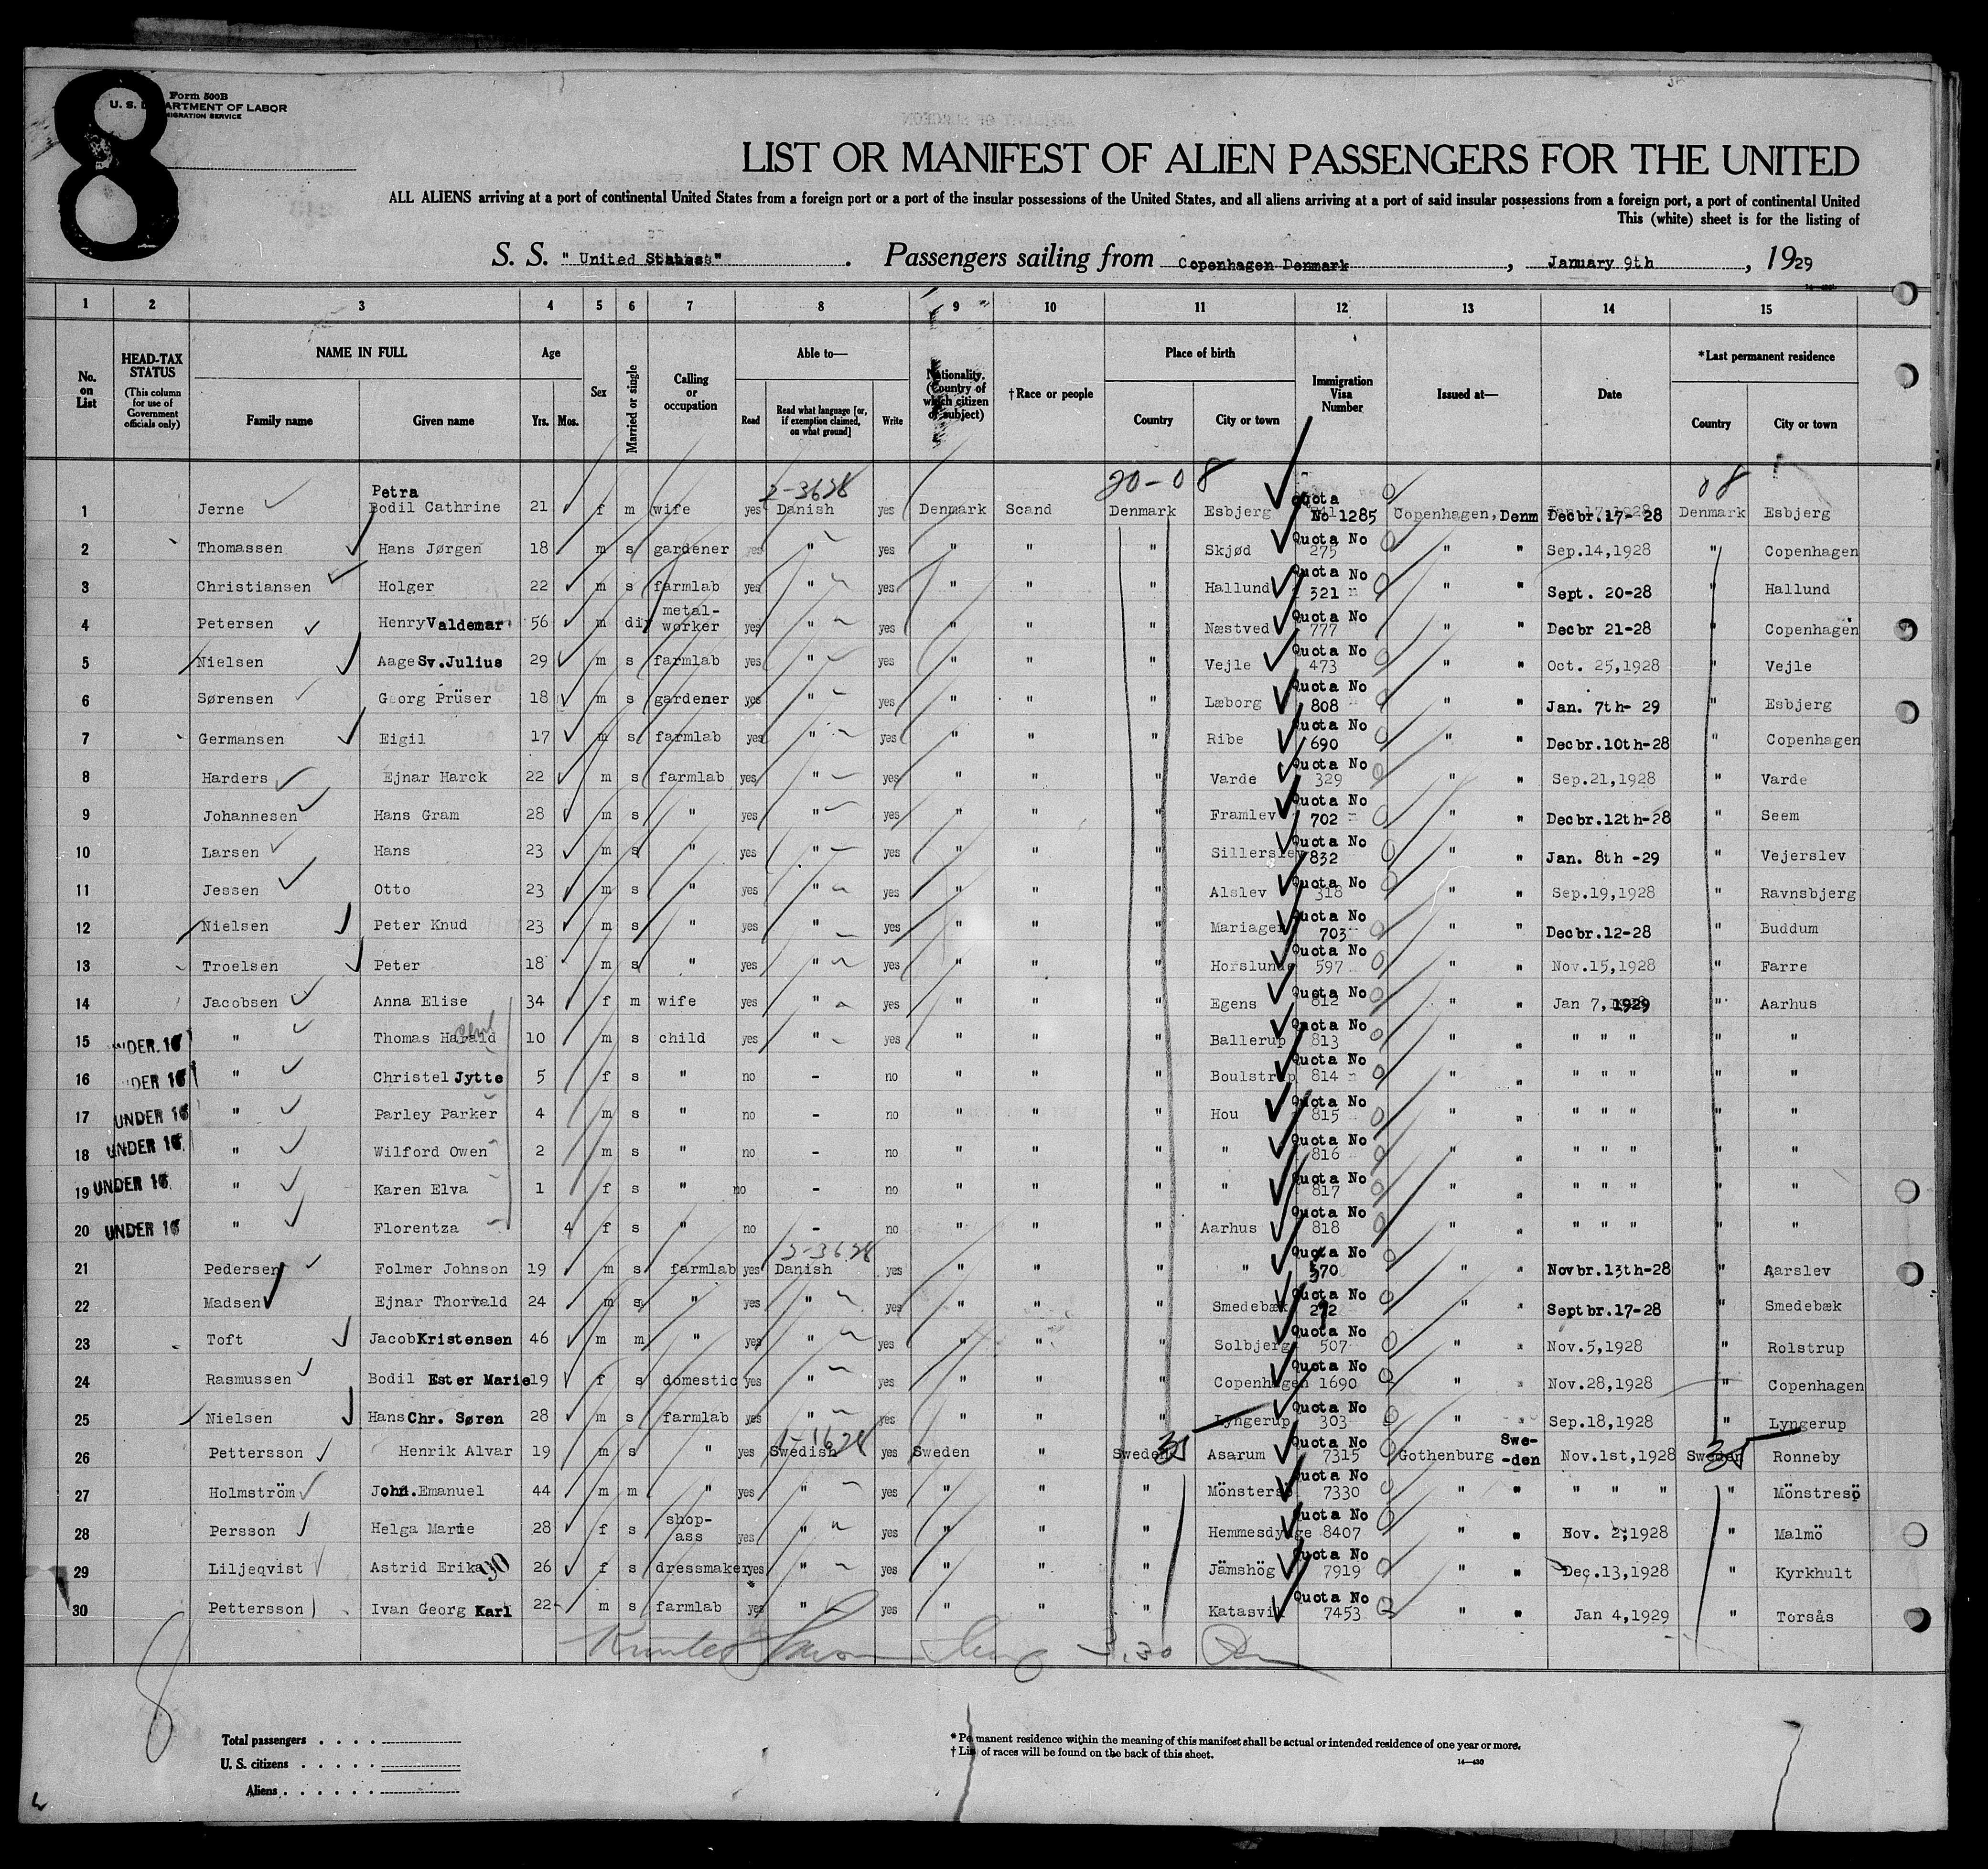 8
Form 500B
U. S. DEPARTMENT OF LABOR
IMMIGRATION SERVICE
LIST OR MANIFEST OF ALIEN PASSENGERS FOR THE UNITED
ALL ALIENS arriving at a port of continental United States from a foreign port or a port of the insular possessions of the United States, and all aliens arriving at a port of said insular possessions from a foreign port, a port of continental United
This (white) sheet is for the listing of
S. S. "United States". Passengers sailing from Copenhagen Denmark, January 9th, 1929
1 2 3 4 5 6 7 8 9 10 11 12 13 14 15
No. on List
HEAD-TAX STATUS (This column for use of Government officials only)
NAME IN FULL
Family name Given name
Age
Yrs. Mos.
Sex
Married or single
Calling or occupation
Able to—
Read Read what language [or, if exemption claimed, on what ground] Write
Nationality. (Country of which citizen or subject)
†Race or people
Place of birth
Country City or town
Immigration Visa Number
Issued at—
Date
*Last permanent residence
Country City or town
2-3628 20-08 08
1 Jerne Petra Bodil Cathrine 21 f m wife yes Danish yes Denmark Scand Denmark Esbjerg Quota No 1285 Copenhagen, Denm Decbr.17-28 Denmark Esbjerg
2 Thomassen Hans Jørgen 18 m s gardener yes " yes " " " Skjød Quota No 275 " " Sep.14,1928 " Copenhagen
3 Christiansen Holger 22 m s farmlab yes " yes " " " Hallund Quota No 321 " " Sept. 20-28 " Hallund
4 Petersen Henry Valdemar 56 m div metal-worker yes " yes " " " Næstved Quota No 777 " " Decbr 21-28 " Copenhagen
5 Nielsen Aage Sv.Julius 29 m s farmlab yes " yes " " " Vejle Quota No 473 " " Oct. 25,1928 " Vejle
6 Sørensen Georg Prüser 18 m s gardener yes " yes " " " Læborg Quota No 808 " " Jan. 7th- 29 " Esbjerg
7 Germansen Eigil 17 m s farmlab yes " yes " " " Ribe Quota No 690 " " Decbr.10th-28 " Copenhagen
8 Harders Ejnar Harck 22 m s farmlab yes " yes " " " Varde Quota No 329 " " Sep.21,1928 " Varde
9 Johannesen Hans Gram 28 m s " yes " yes " " " Framlev Quota No 702 " " Decbr.12th-28 " Seem
10 Larsen Hans 23 m s " yes " yes " " " Sillerslev Quota No 832 " " Jan. 8th -29 " Vejerslev
11 Jessen Otto 23 m s " yes " yes " " " Alslev Quota No 318 " " Sep.19,1928 " Ravnsbjerg
12 Nielsen Peter Knud 23 m s " yes " yes " " " Mariager Quota No 703 " " Decbr.12-28 " Buddum
13 Troelsen Peter 18 m s " yes " yes " " " Horslunde Quota No 597 " " Nov.15,1928 " Farre
14 Jacobsen Anna Elise 34 f m wife yes " yes " " " Egens Quota No 812 " " Jan 7,1929 " Aarhus
15 UNDER 16 " Thomas Harald 10 m s child yes " yes " " " Ballerup Quota No 813 " " " " " " "
16 UNDER 16 " Christel Jytte 5 f s " no - no " " " Boulstrup Quota No 814 " " " " " " "
17 UNDER 16 " Parley Parker 4 m s " no - no " " " Hou Quota No 815 " " " " " " "
18 UNDER 16 " Wilford Owen 2 m s " no - no " " " " Quota No 816 " " " " " " "
19 UNDER 16 " Karen Elva 1 f s " no - no " " " " Quota No 817 " " " " " " "
20 UNDER 16 " Florentza 4 f s " no - no " " " Aarhus Quota No 818 " " " " " " "
2-3628
21 Pedersen Folmer Johnson 19 m s farmlab yes Danish yes " " " " Quota No 570 " " Novbr.13th-28 " Aarslev
22 Madsen Ejnar Thorvald 24 m s " yes " yes " " " Smedebæk Quota No 272 " " Septbr.17-28 " Smedebæk
23 Toft Jacob Kristensen 46 m m " yes " yes " " " Solbjerg Quota No 507 " " Nov.5,1928 " Rolstrup
24 Rasmussen Bodil Ester Marie 19 f s domestic yes " yes " " " Copenhagen Quota No 1690 " " Nov.28,1928 " Copenhagen
25 Nielsen Hans Chr. Søren 28 m s farmlab yes " yes " " " Lyngerup Quota No 303 " " Sep.18,1928 " Lyngerup
26 Pettersson Henrik Alvar 19 m s " yes Swedish 1-1628 yes Sweden " Sweden 35 Asarum Quota No 7315 Gothenburg Swe--den Nov.1st,1928 Sweden 35 Ronneby
27 Holmström John.Emanuel 44 m m " yes " yes " " " Mönsterså Quota No 7330 " " " " " " Mönstresö
28 Persson Helga Marie 28 f s shop-ass yes " yes " " " Hemmesdynge Quota No 8407 " " Nov. 2,1928 " Malmö
29 Liljeqvist Astrid Erika 30 26 f s dressmaker yes " yes " " " Jämshög Quota No 7919 " " Dec.13,1928 " Kyrkhult
30 Pettersson Ivan Georg Karl 22 m s farmlab yes " yes " " " Katasvik Quota No 7453 " " Jan 4,1929 " Torsås
3.30
8
Total passengers . . . .
U. S. citizens . . . . .
Aliens . . . . . .
* Permanent residence within the meaning of this manifest shall be actual or intended residence of one year or more.
† List of races will be found on the back of this sheet.
14—430